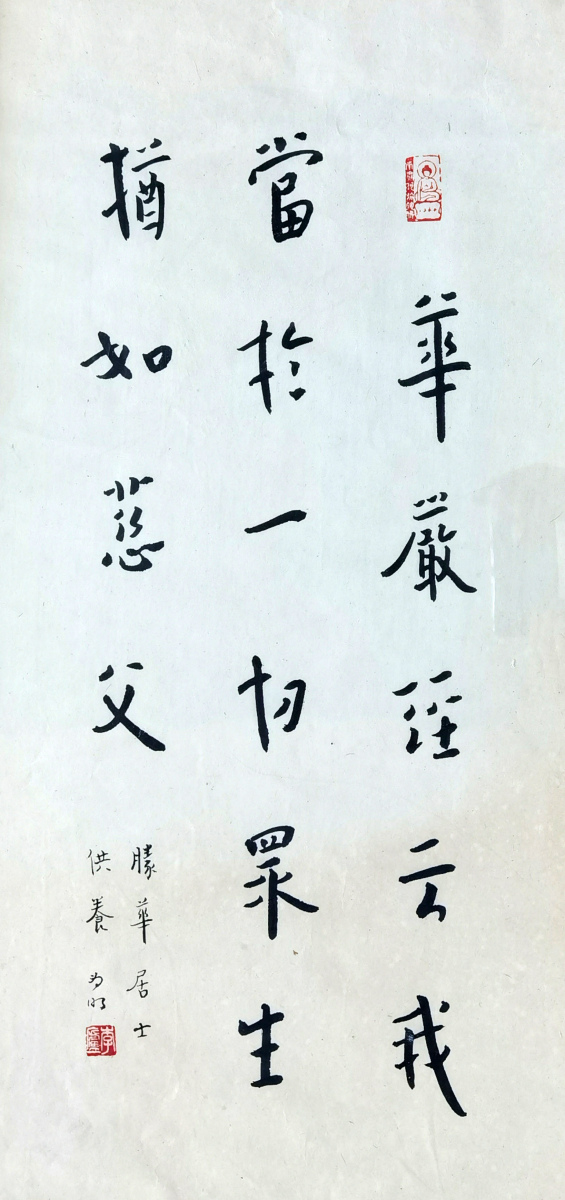 華嚴經云我
當於一切眾生
猶如慈父
勝華居士
供養